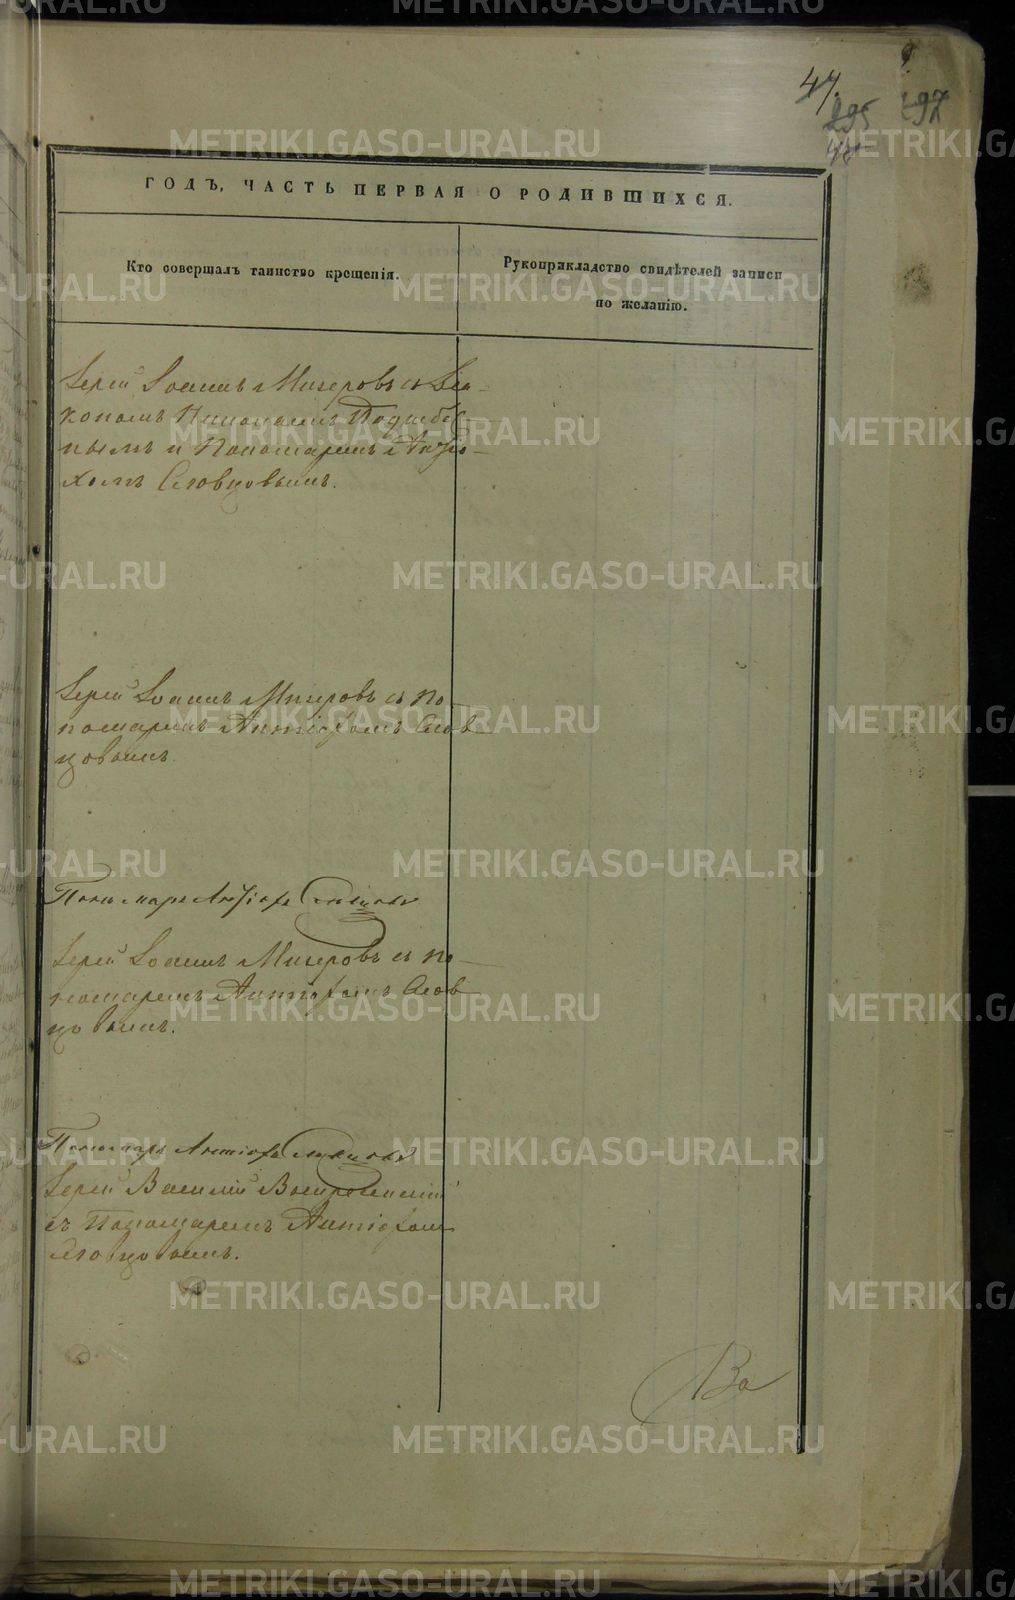 47.
295
297
ГОДЪ, ЧАСТЬ ПЕРВАЯ О РОДИВШИХСЯ.
Кто совершалъ таинство крещенія.
Рукоприкладство свидѣтелей записи
по желанію.
Іерей Іоаннъ Мизеровъ съ Діа-
кономъ Николаемъ
нымъ и Пономаремъ Антіо-
хомъ Словцовымъ.
Іерей Іоаннъ Мизеровъ съ По-
номаремъ Антіохомъ Слов-
цовымъ.
Пономарь Антіохъ Словцовъ
Іерей Іоаннъ Мизеровъ съ По-
номаремъ Антіохомъ Слов-
цовымъ.
Пономарь Антіохъ Словцовъ
Іерей Василій Воскресенскій
съ Пономаремъ Антіохомъ
Словцовымъ.
Во
METRIKI.GASO-URAL.RU